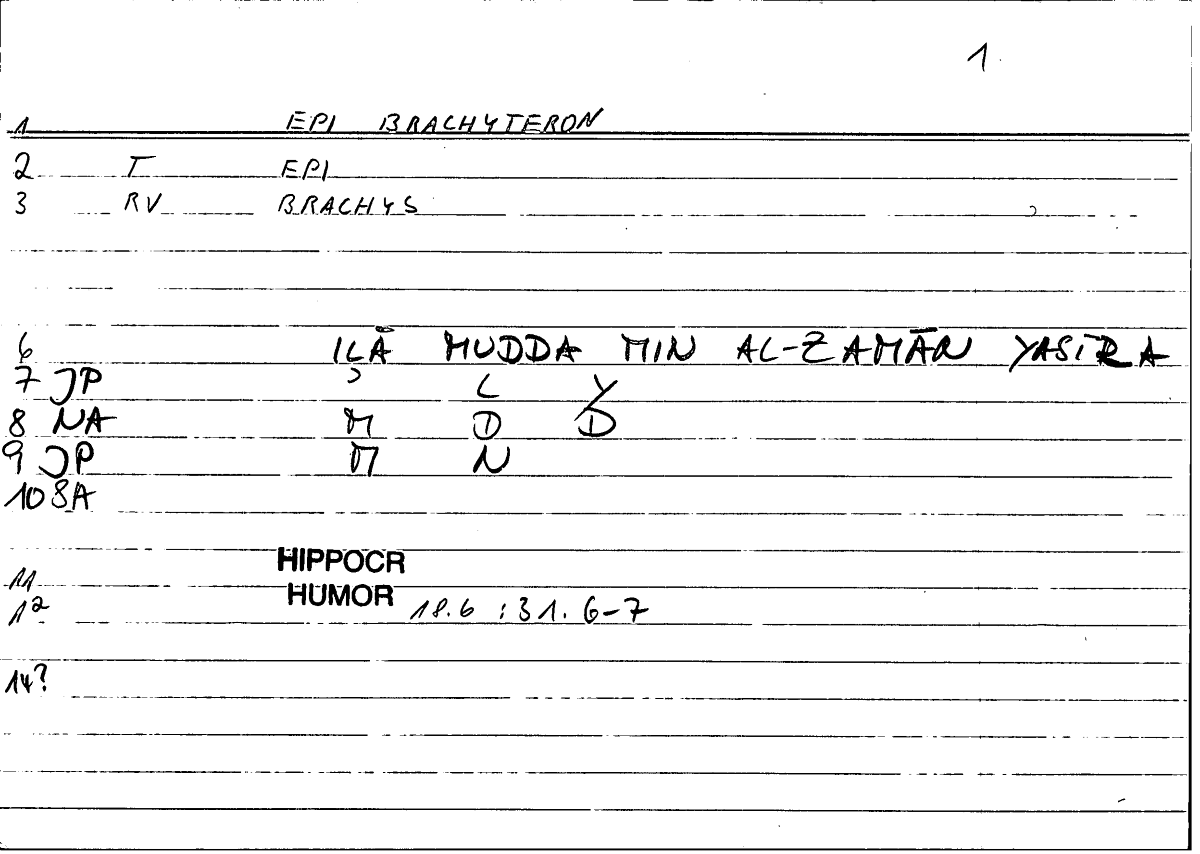 1
1 EPI BRACHYTERON
2 T EPI
3 RV BRACHYS
6 ILĀ MUDDA MIN AL-ZAMĀN YASĪRA
7 JP ʾ L Y
8 NA M D D
9 JP M N
10 SA
11 HIPPOCR
12 HUMOR 18.6 : 31. 6-7
14?